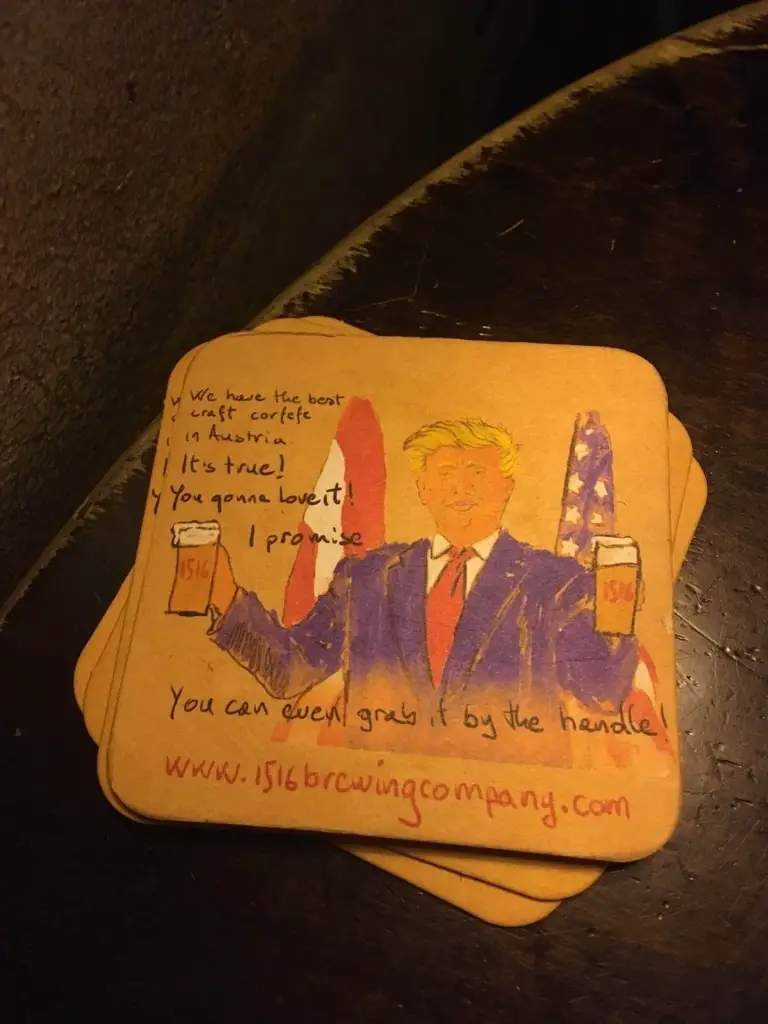 We have the best
craft corfefe
in Austria
It's true!
You gonna love it!
I promise
1516
1516
You can even grab it by the handle!
www.1516brewingcompany.com